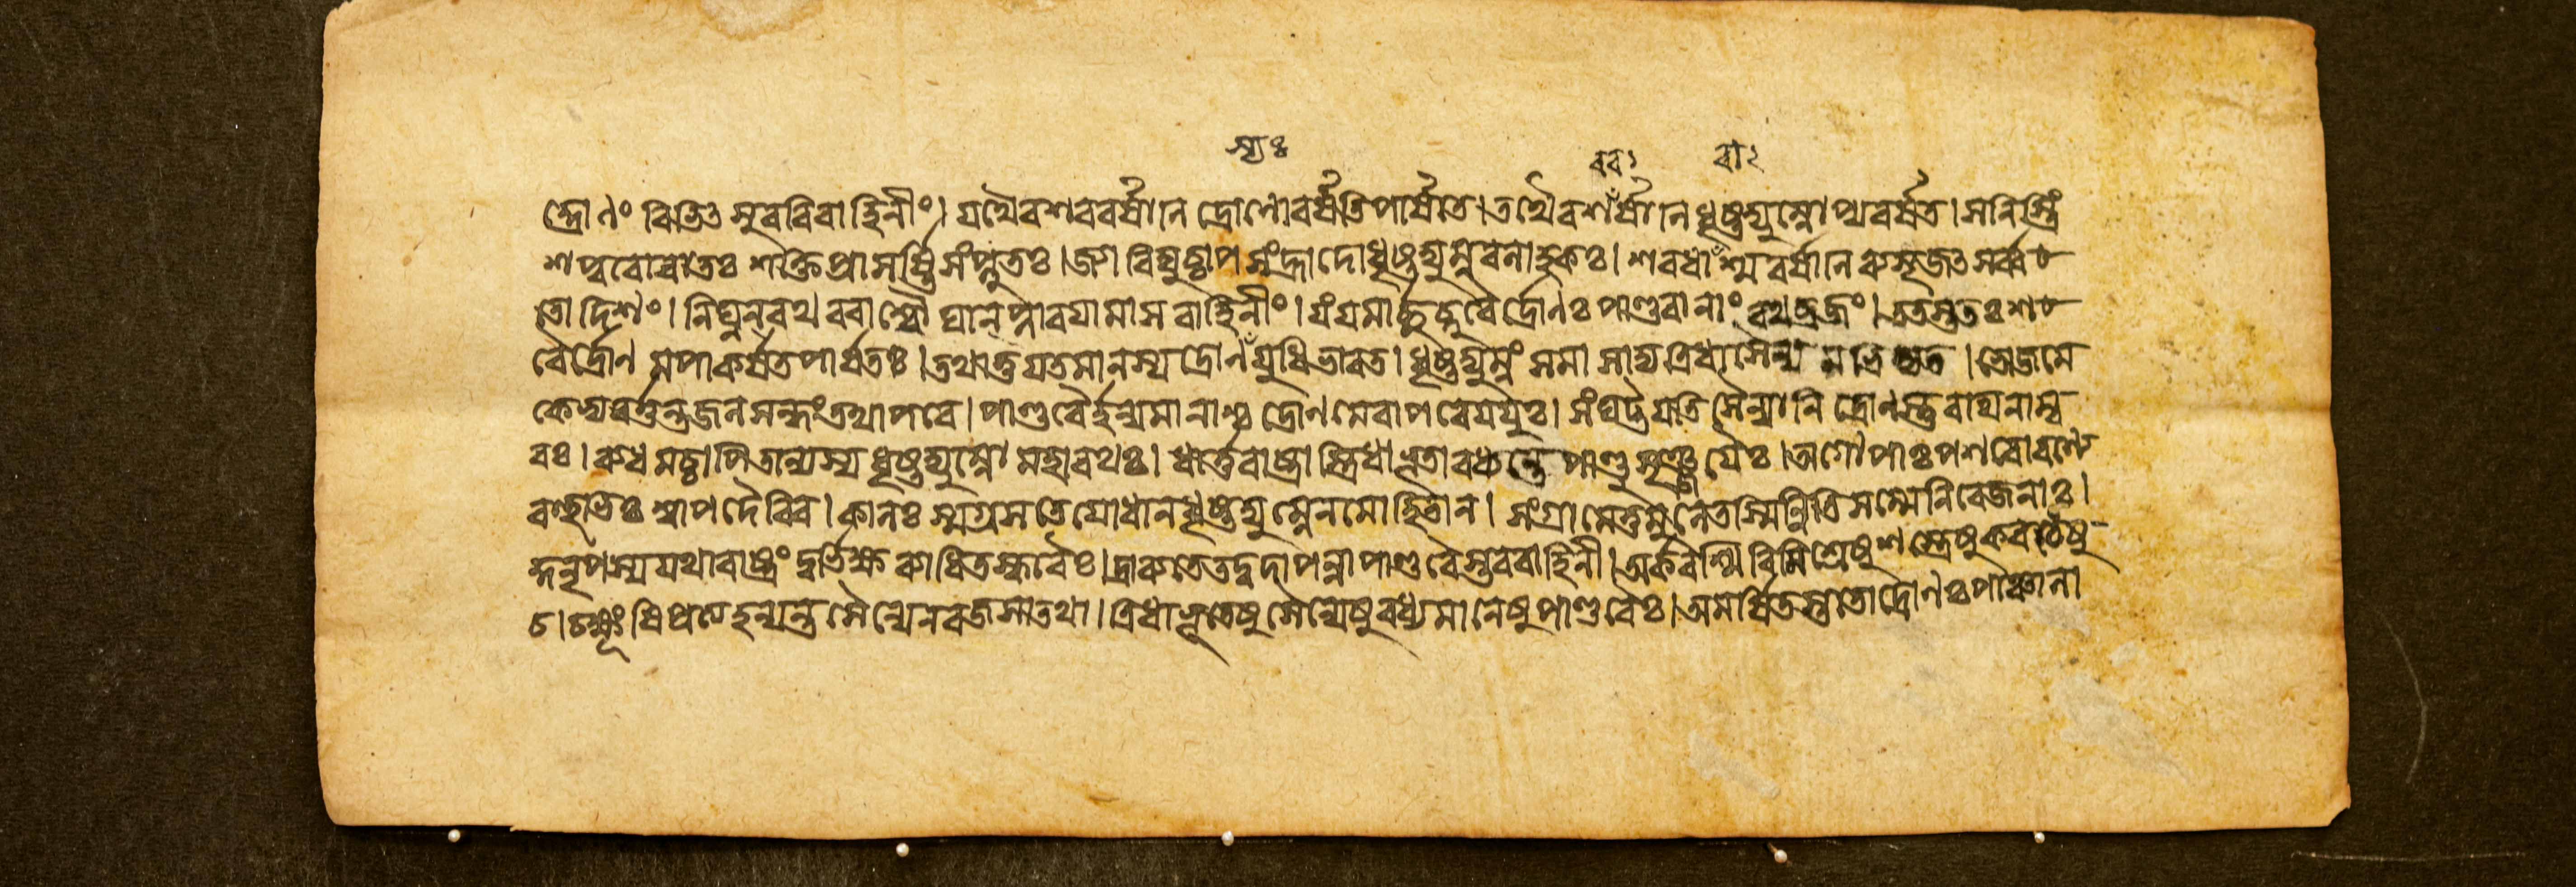 স্যঃ ররা১ রা২
দ্দ্রোণং বিভিৎসুবরবিবাহিনীং। যথৈবশরবর্ষানি দ্রোণোবর্ষতিপার্ষতে। তথৈবশর্ষানি ধৃষ্টদ্যুম্নোপ্যবর্ষত। সনিস্ত্রিং
শপুরোবাতঃ শক্তিপ্রাসর্ষ্টিসংপ্লুতঃ। জ্যাবিদ্যুচ্চাপসংহ্রাদোধৃষ্টদ্যুম্নবলাহকঃ। শরধারাশ্মবর্ষানি ব্যসৃজৎসর্ব্ব
তো দিশং। নিঘ্নন্রথবরাশ্বৌঘান্প্লাবযামাস বাহিনীং। যংযমার্চ্ছচ্ছরৈর্দ্রোণঃপাণ্ডবানাং রথব্রজং। ততস্ততঃ শ
রৈর্দ্রোণমপাকর্ষতপার্ষতঃ। তথাতুযতমানস্য দ্রোণযুধিভারত। ধৃষ্টদ্যুম্নং সমাসাদ্য ত্রিধাসৈন্যমভিদ্যত। ভোজমে
কেভ্যবর্ত্তন্ত জলসন্ধং তথাপরে। পাণ্ডবৈর্হন্যমানাশ্চ দ্রোণমেবাপরেযযুঃ। সংঘট্টযতি সৈন্যানি দ্রোণস্তু রথিনাম্ব
রঃ। ব্যধমচ্চাপিতান্যস্য ধৃষ্টদ্যুম্নো মহারথঃ। ধার্ত্তরাষ্ট্রাস্ত্রিধাভূতাবধ্যন্তে পাণ্ডুসৃঞ্জযৈঃ। অগোপাঃপশবোরণ্যে
বহুভিঃ শ্বাপদৈরিব। কালঃ স্মগ্রসতেযোধানধৃষ্টদ্যুম্নেনমোহিতান। সংগ্রামেতুমুলেতস্মিন্নিতি সম্মেনিরেজনাঃ।
কুনৃপস্য যথারাষ্ট্রং দুর্ভিক্ষব্যাধিতস্করৈঃ। দ্রাব্যতেতদ্বদাপন্না পাণ্ডবৈস্তববাহিনী। অর্করশ্মিবিমিশ্রেষু শস্ত্রেষু কবচেষু
চ। চক্ষূংষি প্রতিহন্যন্তে সৈন্যেনরজসাতথা। ত্রিধাভূতেষু সৈন্যেষু বধ্যমানেষু পাণ্ডবৈঃ। অমর্ষিতস্ততোদ্রোণঃপাঞ্চালা